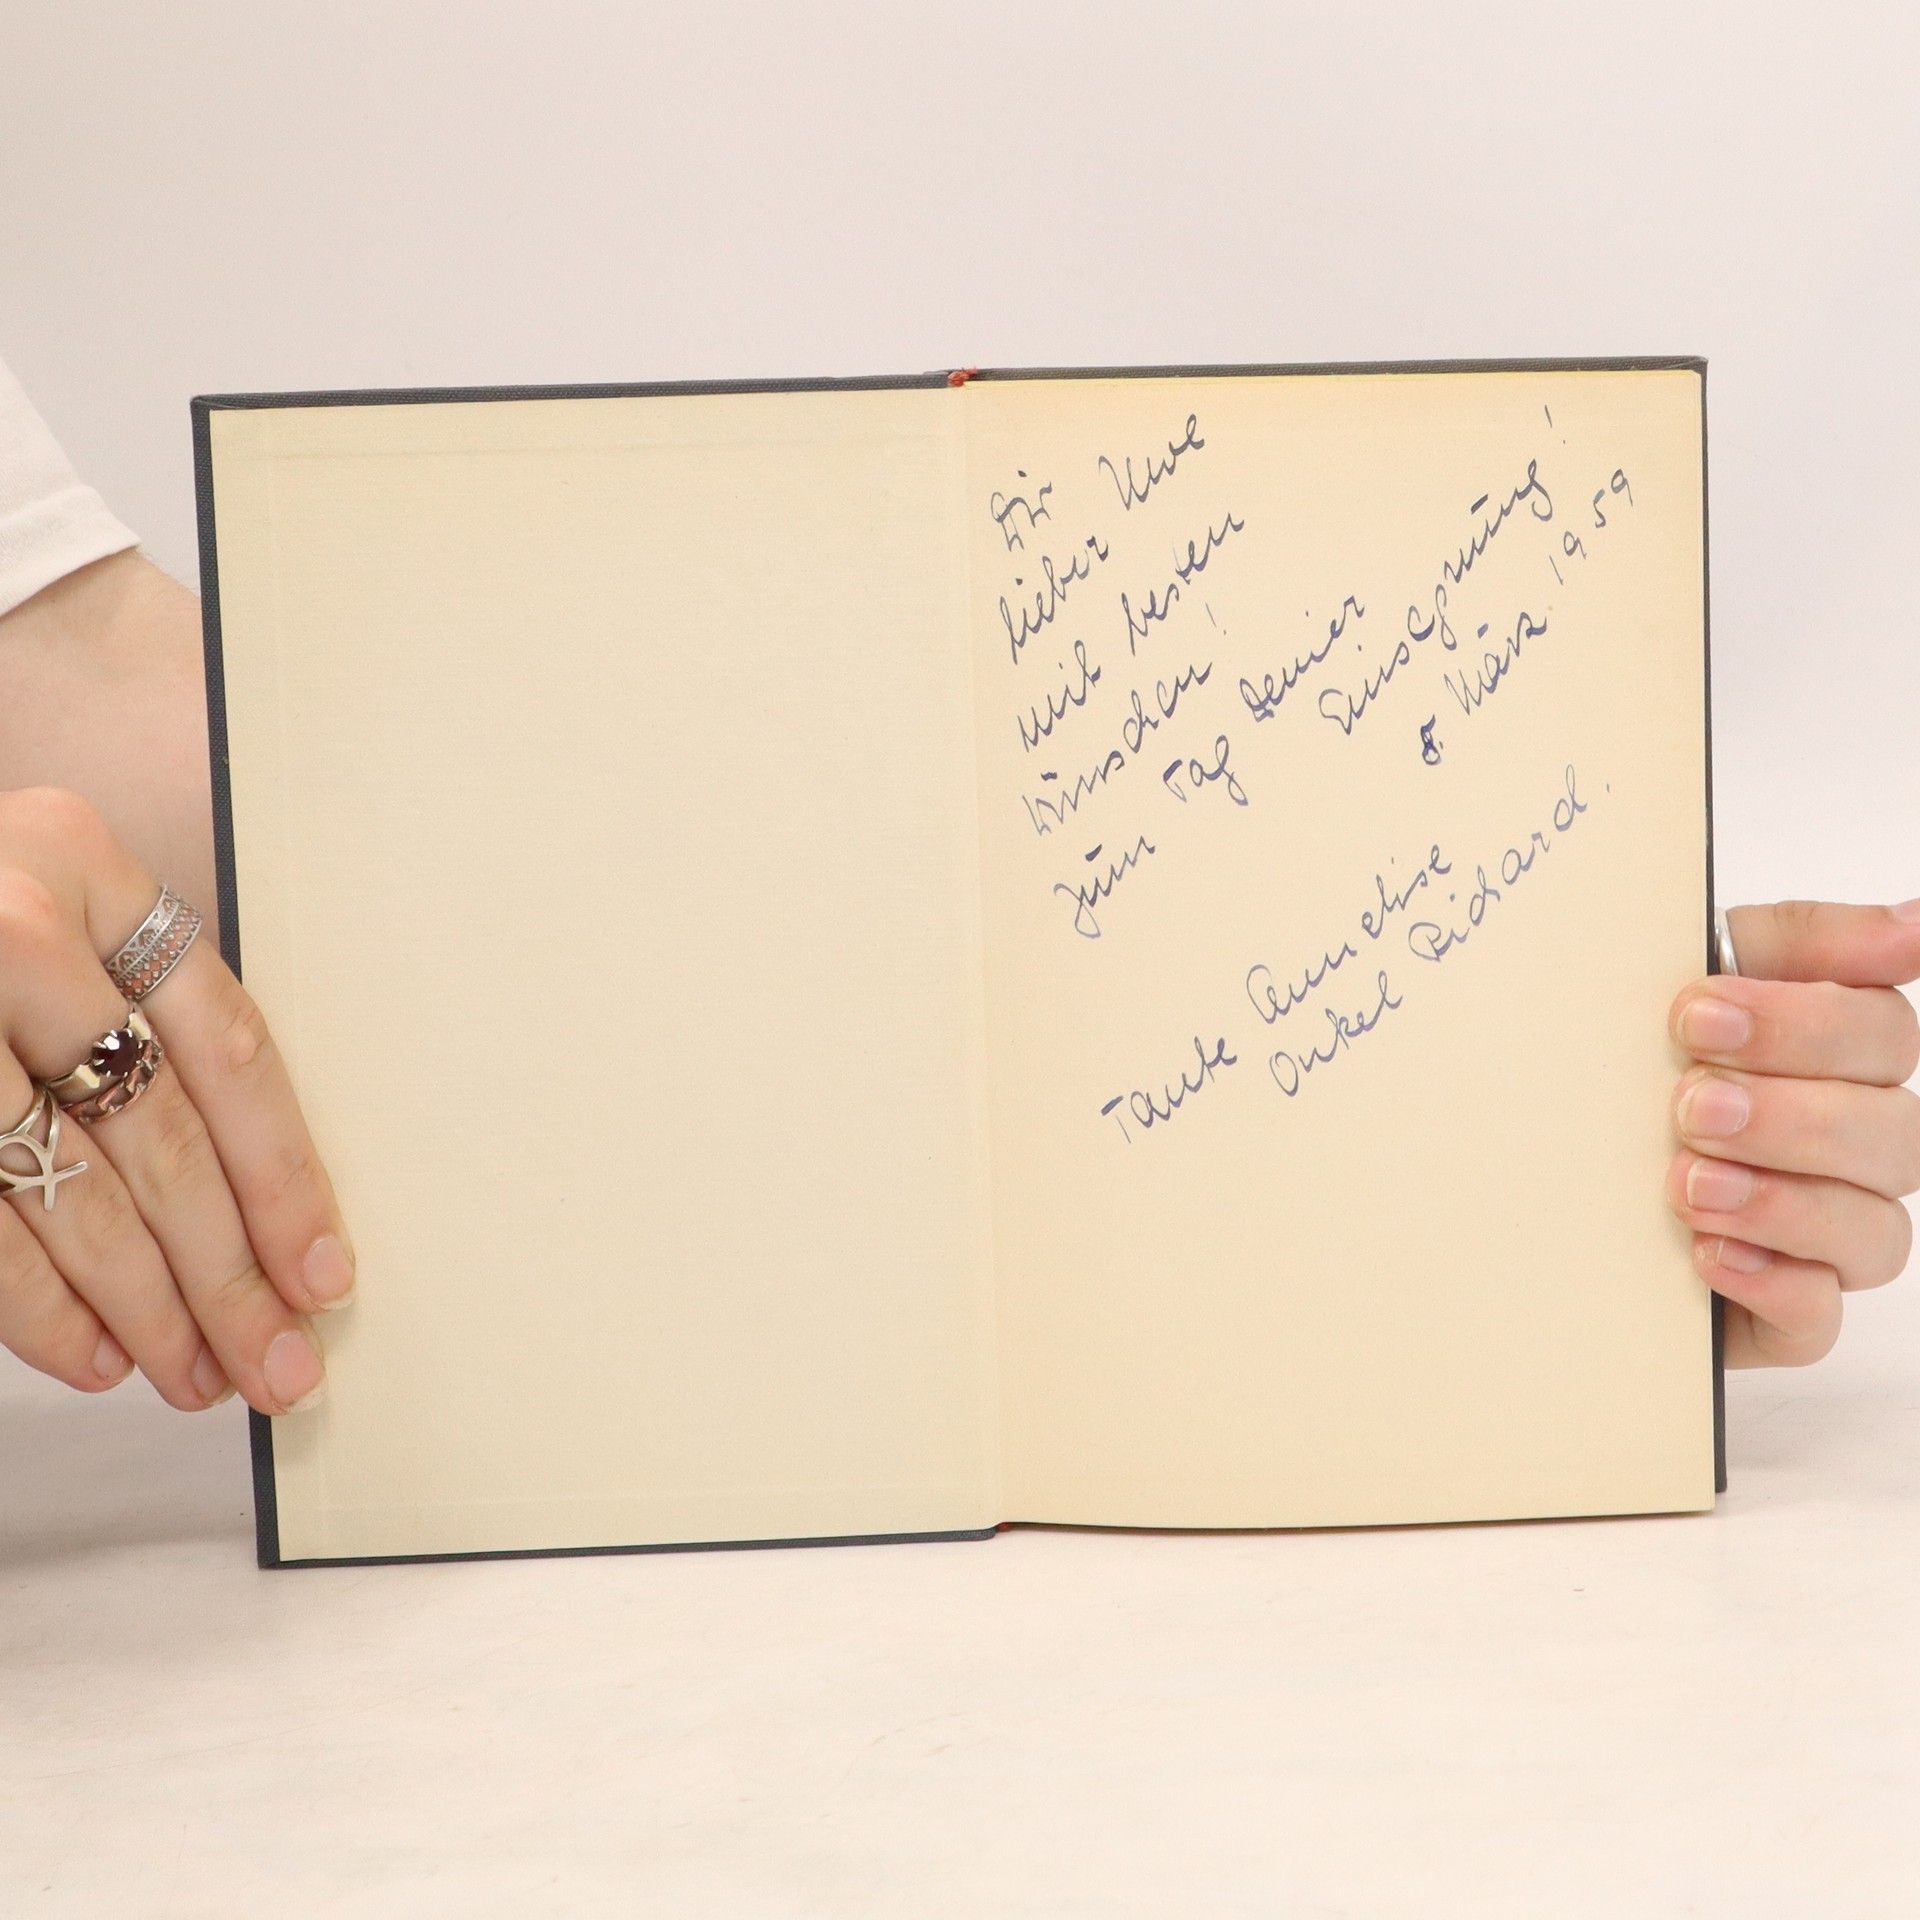 Dir
lieber Uwe
mit besten
Wünschen!
zum Tag Deiner
Einsegnung!
8. März 1959
Tante Annelise
Onkel Richard.